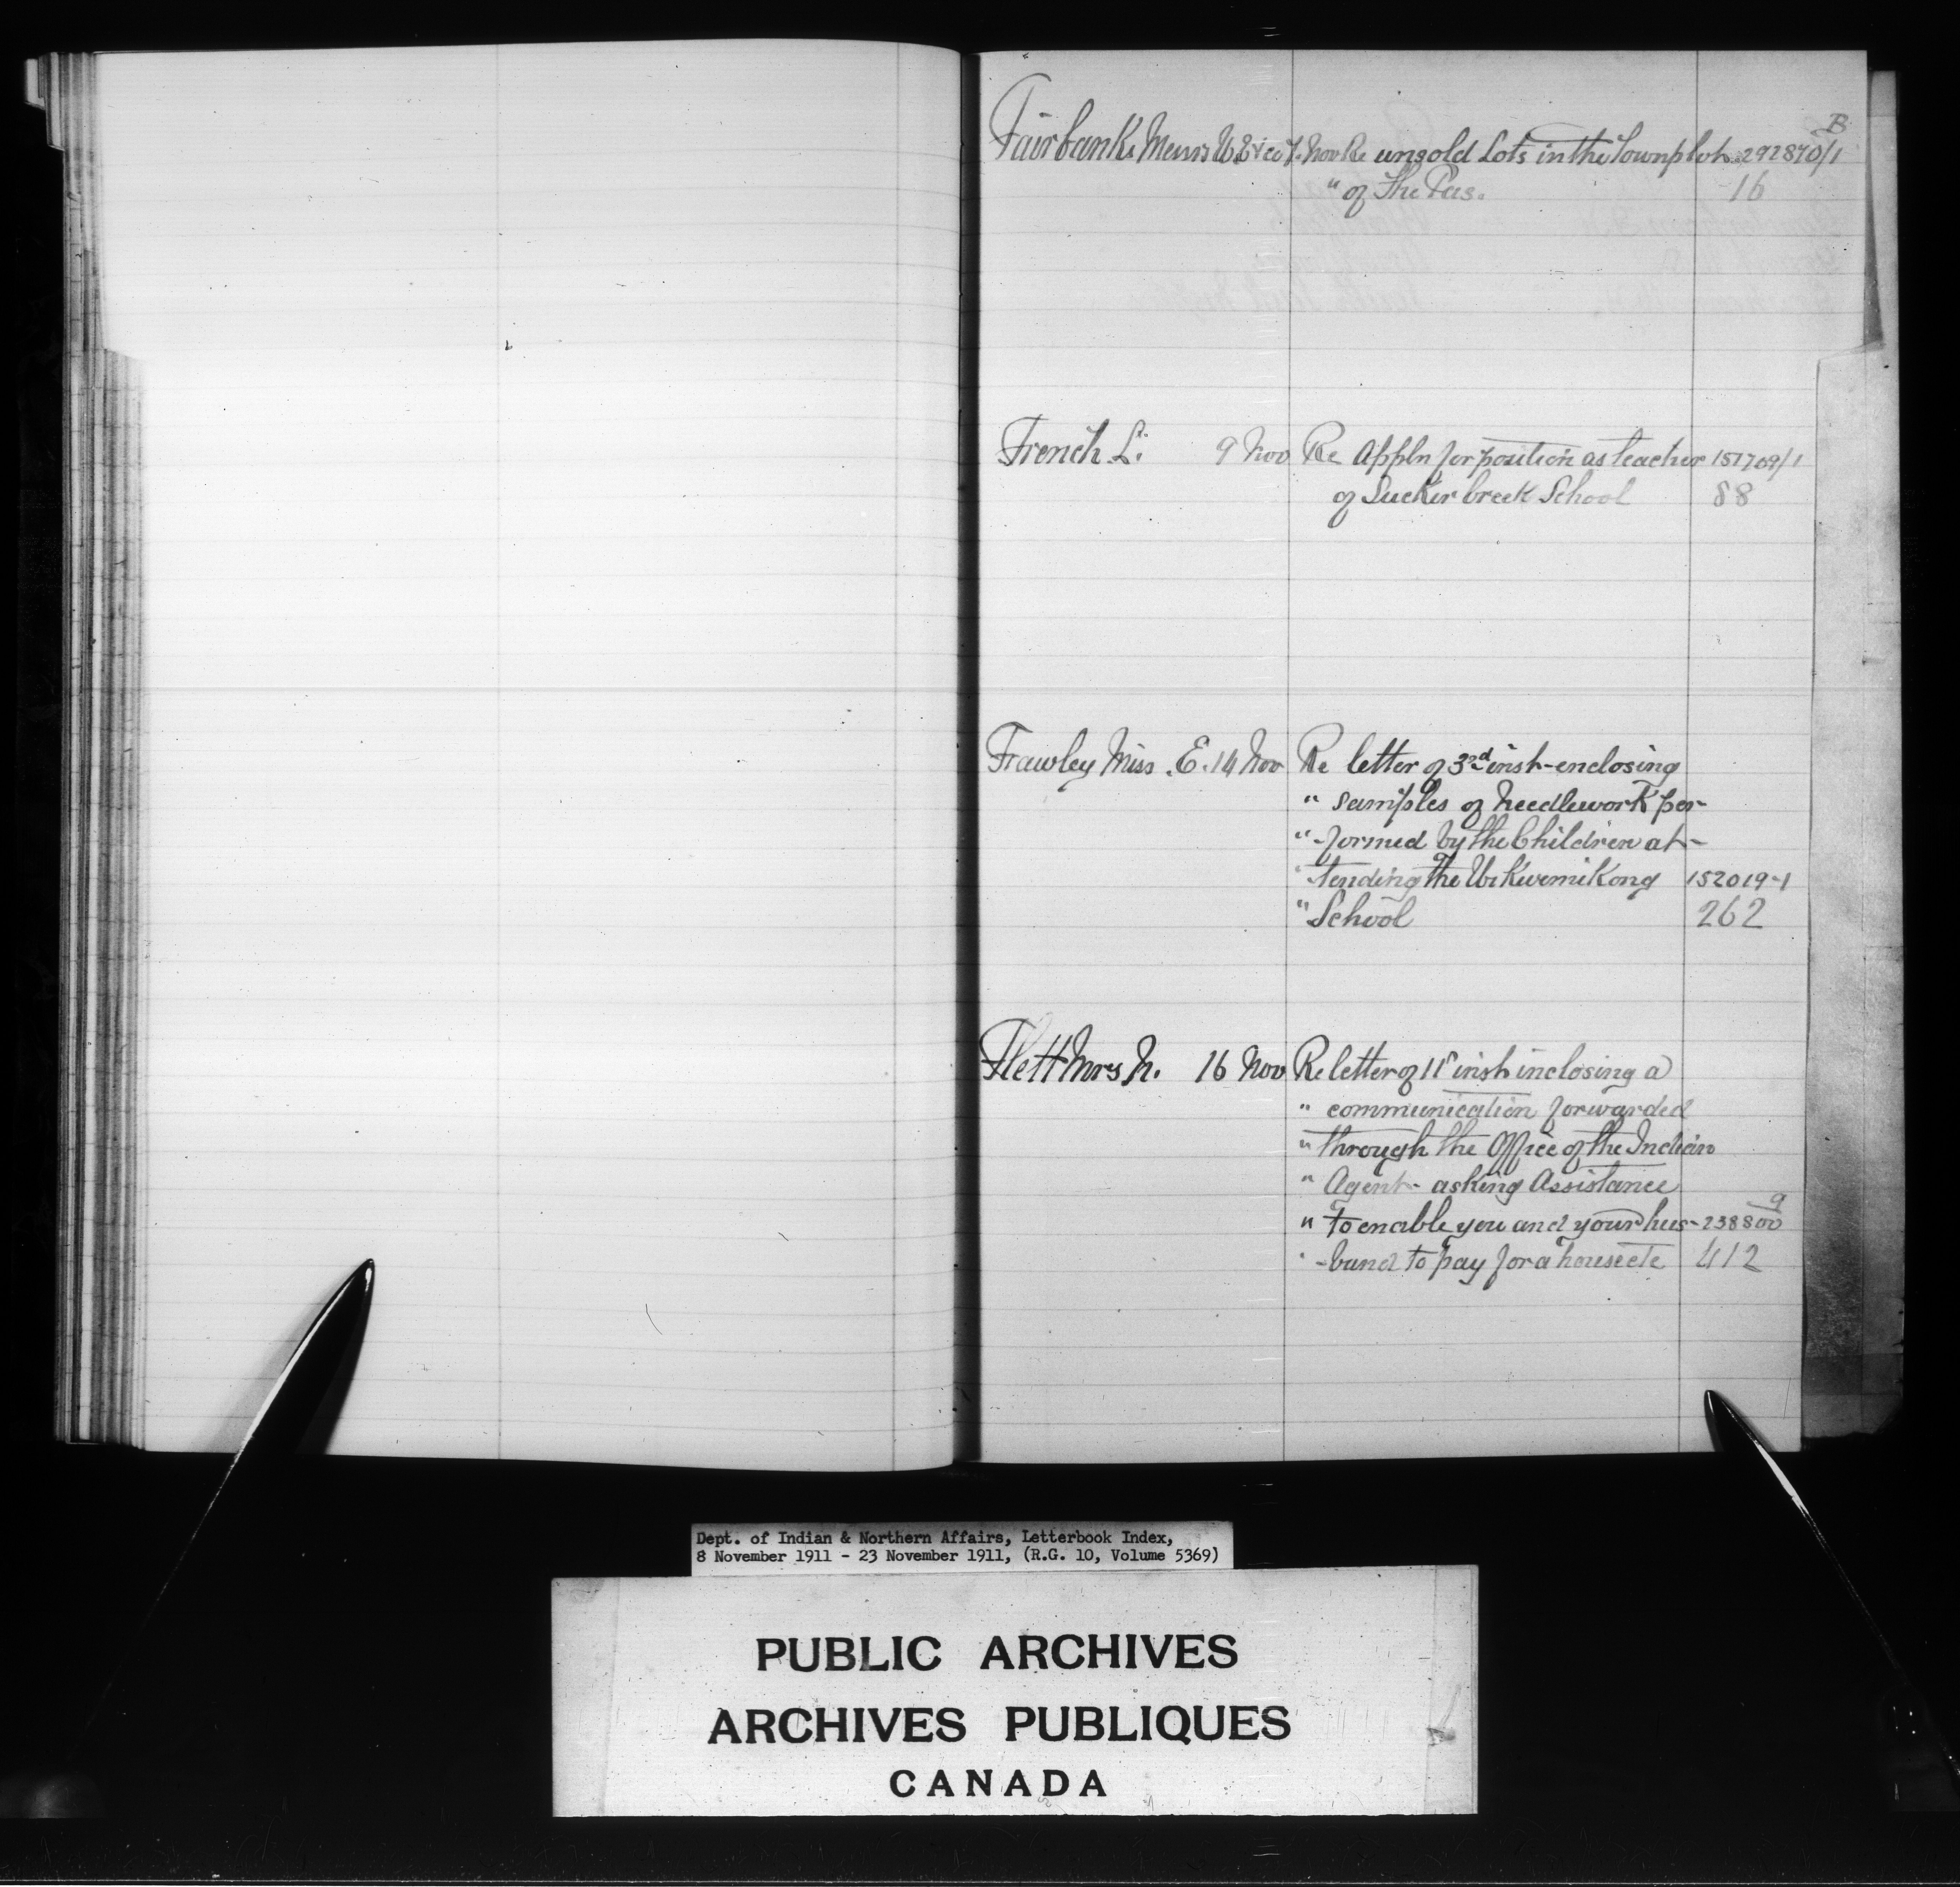 B
Fairbanks Messrs W. E & Co 7. Nov Re unsold Lots in the Townplot 292870/1
" of The Pas. 16
French L. 9 Nov Re Appln for position as teacher 151709/1
of Sucker Creek School 88
Frawley Miss E. 14 Nov Re letter of 3rd inst-enclosing
" samples of Needlework per-
" -formed by the Children at-
" tending the Wikwemikong 152019-1
" School 262
Flett Mrs N. 16 Nov Re letter of 11th inst inclosing a
" communication forwarded
" through the Office of the Indian
" Agent- asking Assistance
" to enable you and your hus- 238800 9
" -band to pay for a house etc 412
Dept. of Indian & Northern Affairs, Letterbook Index,
8 November 1911 - 23 November 1911, (R.G. 10, Volume 5369)
PUBLIC ARCHIVES
ARCHIVES PUBLIQUES
CANADA